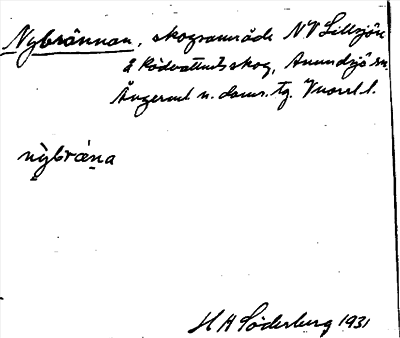 Nybrännan, skogsområde NV Lillsjön
å Rödvattnets skog, Anundsjö sn.
Ångerml. n. doms. tg. Vnorrl. l.
nỳbrána
H A Söderberg 1931